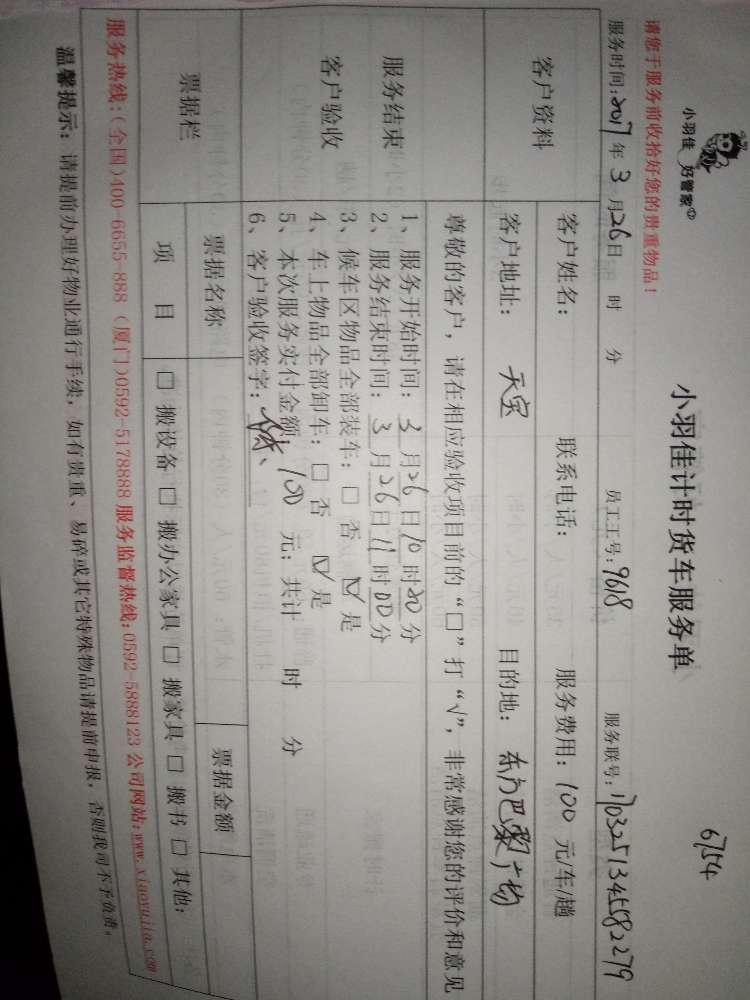 6754
小羽佳 好管家
小羽佳计时货车服务单
请您于服务前收拾好您的贵重物品！
服务时间：2017年3月26日 时 分 员工工号：9618 服务联号：1703251345582279
客户资料
客户姓名： 联系电话： 服务费用：100 元/车/趟
客户地址： 天宝 目的地：东方巴黎广场
服务结束
客户验收
尊敬的客户，请在相应验收项目前的“□”打“√”，非常感谢您的评价和意见
1、服务开始时间：3月26日10时20分
2、服务结束时间：3月26日11时00分
3、候车区物品全部装车：□ 否 ☑ 是
4、车上物品全部卸车：□ 否 ☑ 是
5、本次服务实付金额 100 元；共计 时 分
6、客户验收签字：
票据栏
票据名称 票据金额
项 目 □ 搬设备 □ 搬办公家具 □ 搬家具 □ 搬书 □ 其他：
服务热线：（全国）400-6655-888（厦门）0592-5178888 服务监督热线：0592-5888123 公司网站：www.xiaoyujia.com
温馨提示：请提前办理好物业通行手续，如有贵重、易碎或其它特殊物品请提前申报，否则我司不予负责。